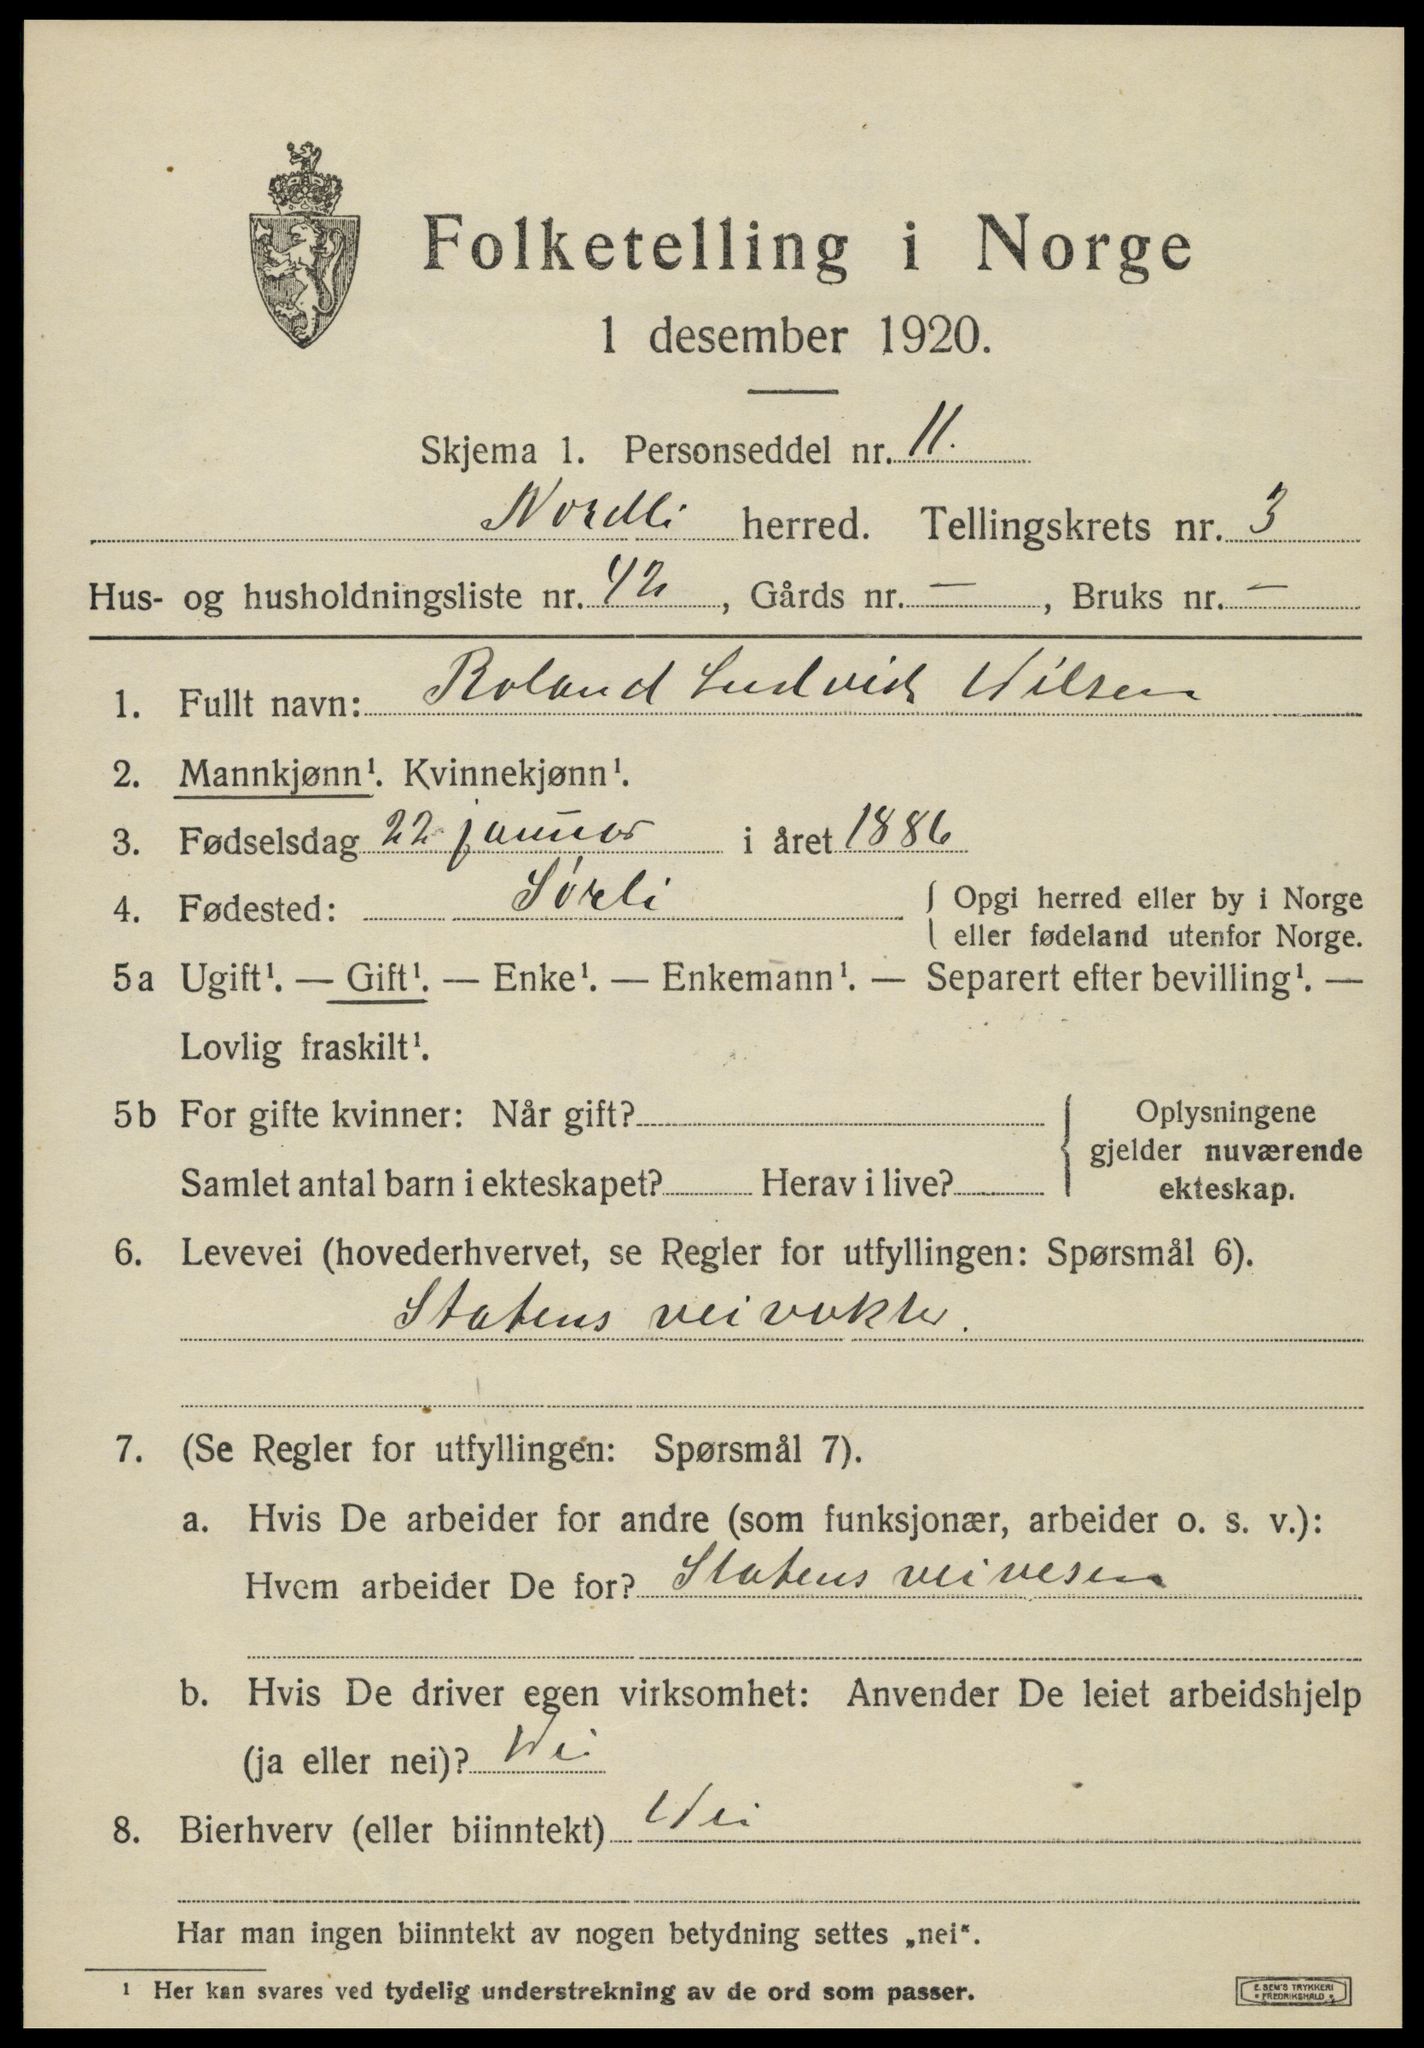 Folketelling i Norge
1 desember 1920.
Skjema 1. Personseddel nr. 11.
Nordli herred. Tellingskrets nr. 3
Hus- og husholdningsliste nr. 42, Gårds nr. —, Bruks nr. —
1. Fullt navn: Roland Ludvik Nilsen
2. Mannkjønn¹. Kvinnekjønn¹.
3. Fødselsdag 22 januar i året 1886
4. Fødested: Sørli { Opgi herred eller by i Norge
eller fødeland utenfor Norge.
5a Ugift¹. — Gift¹. — Enke¹. — Enkemann¹. — Separert efter bevilling¹. —
Lovlig fraskilt¹.
5b For gifte kvinner: Når gift? { Oplysningene
gjelder nuværende
Samlet antal barn i ekteskapet? Herav i live? ekteskap.
6. Levevei (hovederhvervet, se Regler for utfyllingen: Spørsmål 6).
Statens veivokter.
7. (Se Regler for utfyllingen: Spørsmål 7).
a. Hvis De arbeider for andre (som funksjonær, arbeider o. s. v.):
Hvem arbeider De for? Statens veivesen
b. Hvis De driver egen virksomhet: Anvender De leiet arbeidshjelp
(ja eller nei)? Nei
8. Bierhverv (eller biinntekt) Nei
Har man ingen biinntekt av nogen betydning settes „nei“.
¹ Her kan svares ved tydelig understrekning av de ord som passer.
E. SEM'S TRYKKERI
• FREDRIKSHALD •